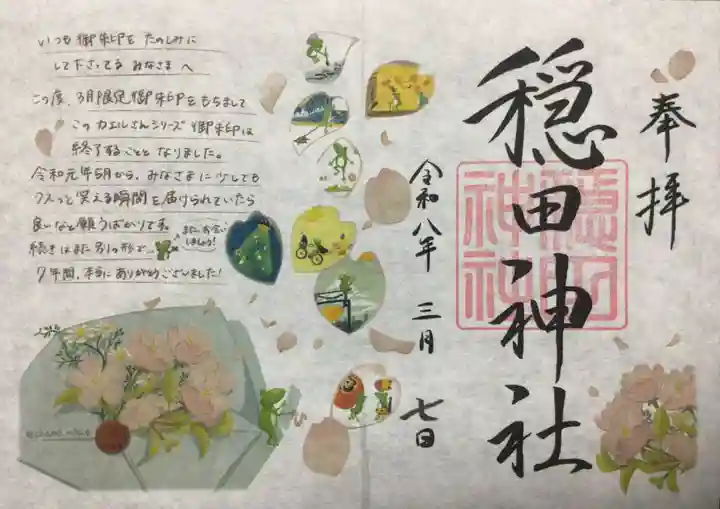 奉拝
穏田神社
令和八年 三月 七日
いつも御朱印をたのしみに
して下さってる みなさまへ
この度、3月限定御朱印をもちまして
このカエルさんシリーズ御朱印は
終了することとなりました。
令和元年5月から、みなさまに少しでも
クスっと笑える瞬間を届けられていたら
良いなと願うばかりです。
続きはまた別の形で…
また、お会い
しましょう!
7年間、本当にありがとうございました!